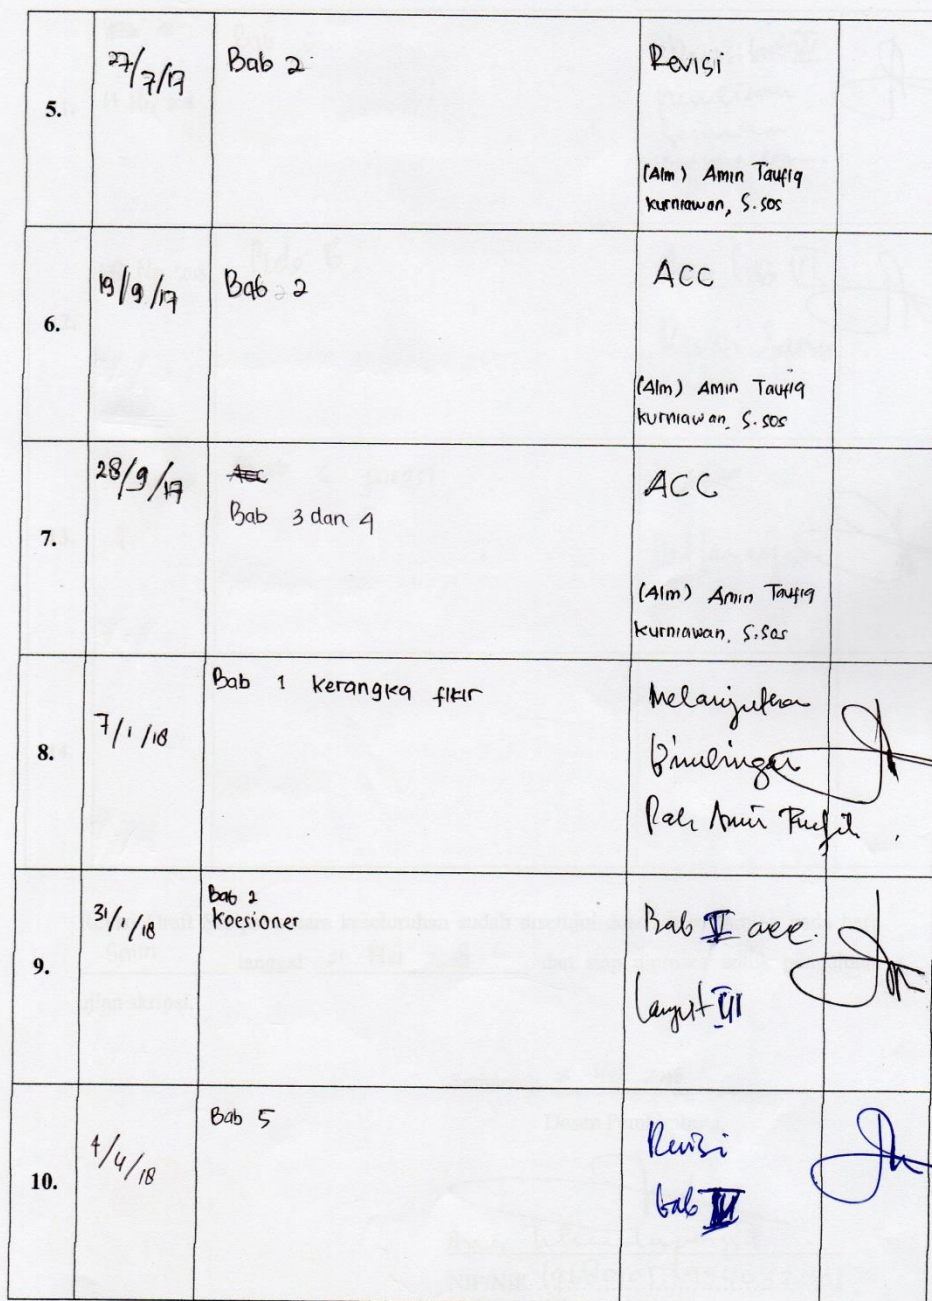 5.
27/7/17
Bab 2
Revisi
(Alm) Amin Taufiq
kurniawan, S.sos
6.
19/9/17
Bab 2
ACC
(Alm) Amin Taufiq
kurniawan, S.sos
7.
28/9/17
Acc
Bab 3 dan 4
ACC
(Alm) Amin Taufiq
kurniawan, S.sos
8.
7/1/18
Bab 1 kerangka fikir
Melanjutkan
Bimbingan
Pak Amin Taufik
9.
31/1/18
Bab 2
koesioner
Bab II acc.
Lanjut III
10.
4/4/18
Bab 5
Revisi
bab